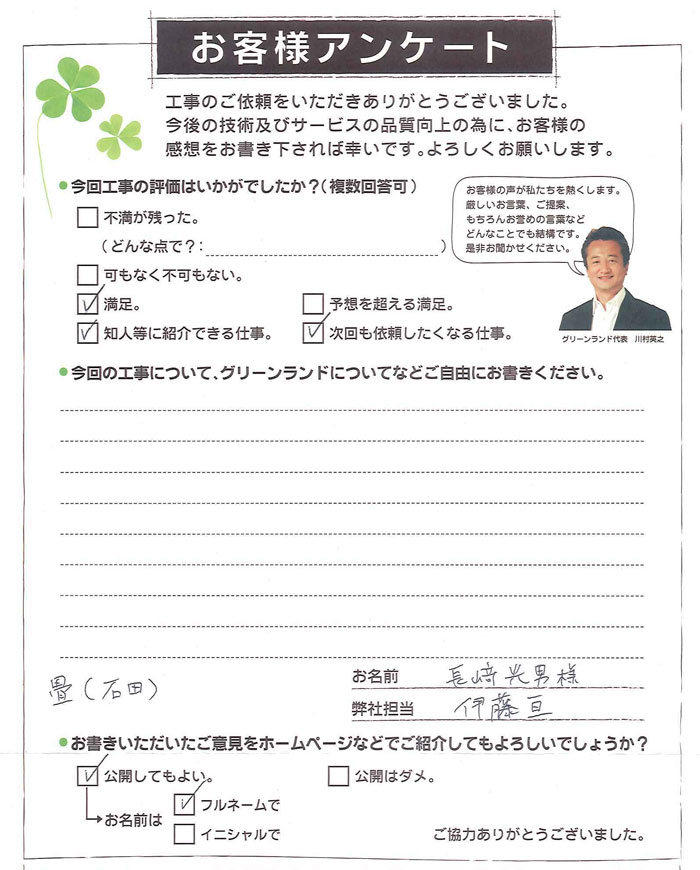 お客様アンケート
工事のご依頼をいただきありがとうございました。
今後の技術及びサービスの品質向上の為に、お客様の
感想をお書き下されば幸いです。よろしくお願いします。
●今回工事の評価はいかがでしたか？（複数回答可）
不満が残った。
（どんな点で？：　）
可もなく不可もない。
満足。
予想を超える満足。
知人等に紹介できる仕事。
次回も依頼したくなる仕事。
お客様の声が私たちを熱くします。
厳しいお言葉、ご提案、
もちろんお誉めの言葉など
どんなことでも結構です。
是非お聞かせください。
グリーンランド代表　川村英之
●今回の工事について、グリーンランドについてなどご自由にお書きください。
畳（石田）
お名前　長﨑光男様
弊社担当　伊藤亘
●お書きいただいたご意見をホームページなどでご紹介してもよろしいでしょうか？
公開してもよい。
公開はダメ。
お名前は
フルネームで
イニシャルで
ご協力ありがとうございました。